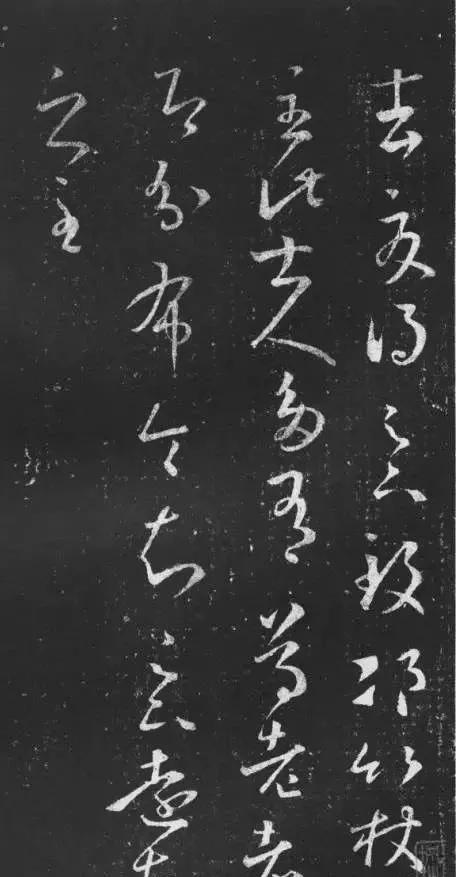 去夏得足下致邛竹杖
至此士人多有尊老者
即分布令知足下遠惠
之至